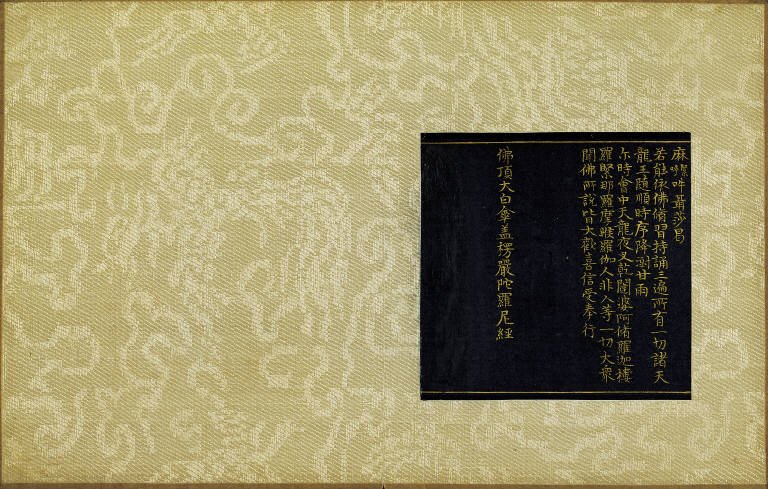 麻囉吽聶莎曷
若能依佛備習持誦三遍所有一切諸天
龍王隨順時序降澍甘雨
尒時會中天龍夜叉乾闥婆阿脩羅迦樓
羅緊那羅摩睺羅伽人非人等一切大衆
聞佛所說皆大歡喜信受奉行
佛頂大白傘盖楞嚴陀羅尼經